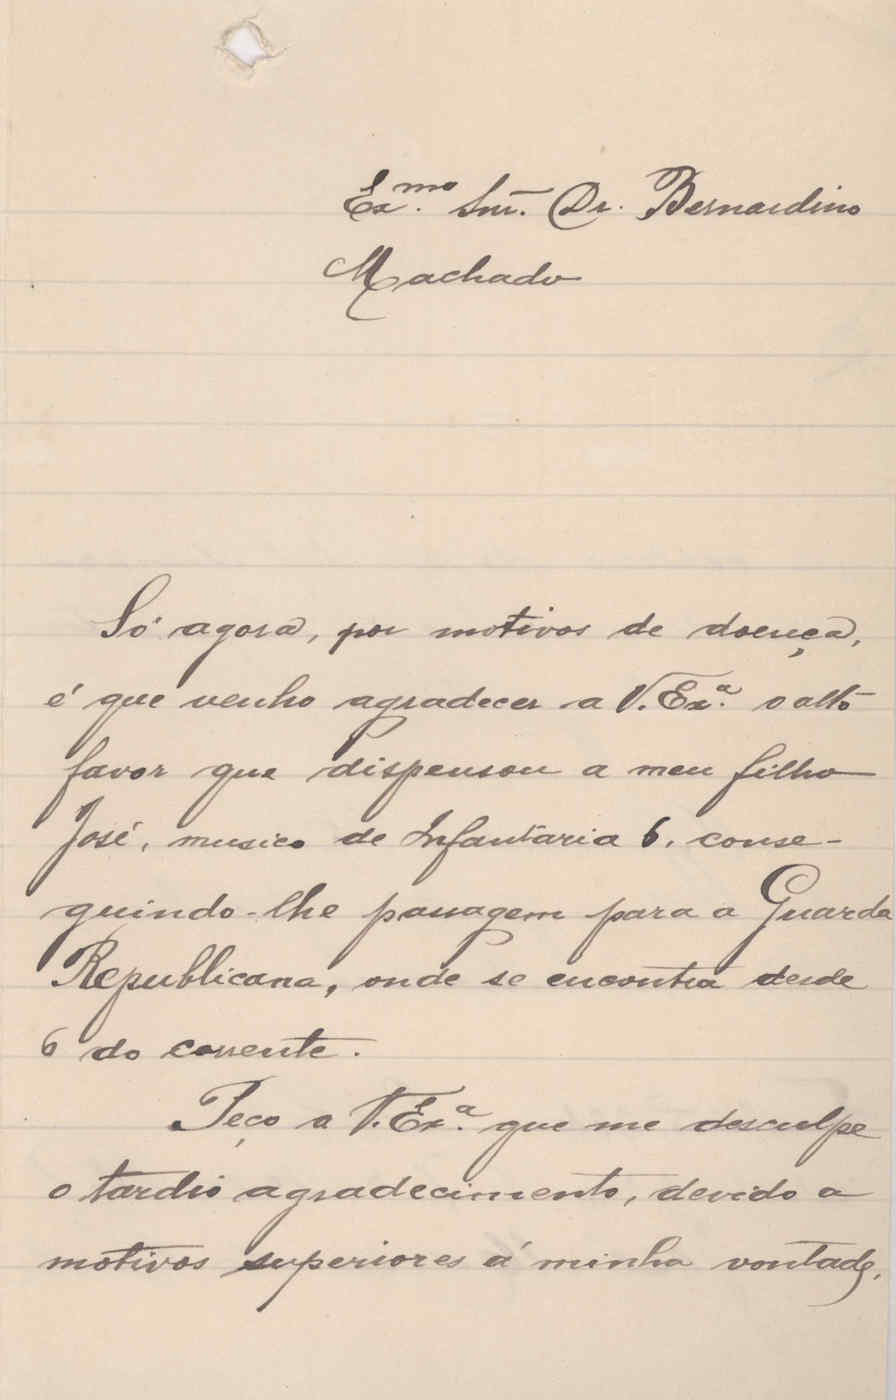 Ex.mo Snr. Dr. Bernardino
Machado
Só agora, por motivos de doença,
é que venho agradecer a V. Ex.a o alto
favor que dispensou a meu filho
José, musico de Infantaria 6, conse-
guindo-lhe passagem para a Guarda
Republicana, onde se encontra desde
6 do corrente.
Peço a V. Ex.a que me desculpe
o tardio agradecimento, devido a
motivos superiores á minha vontade,